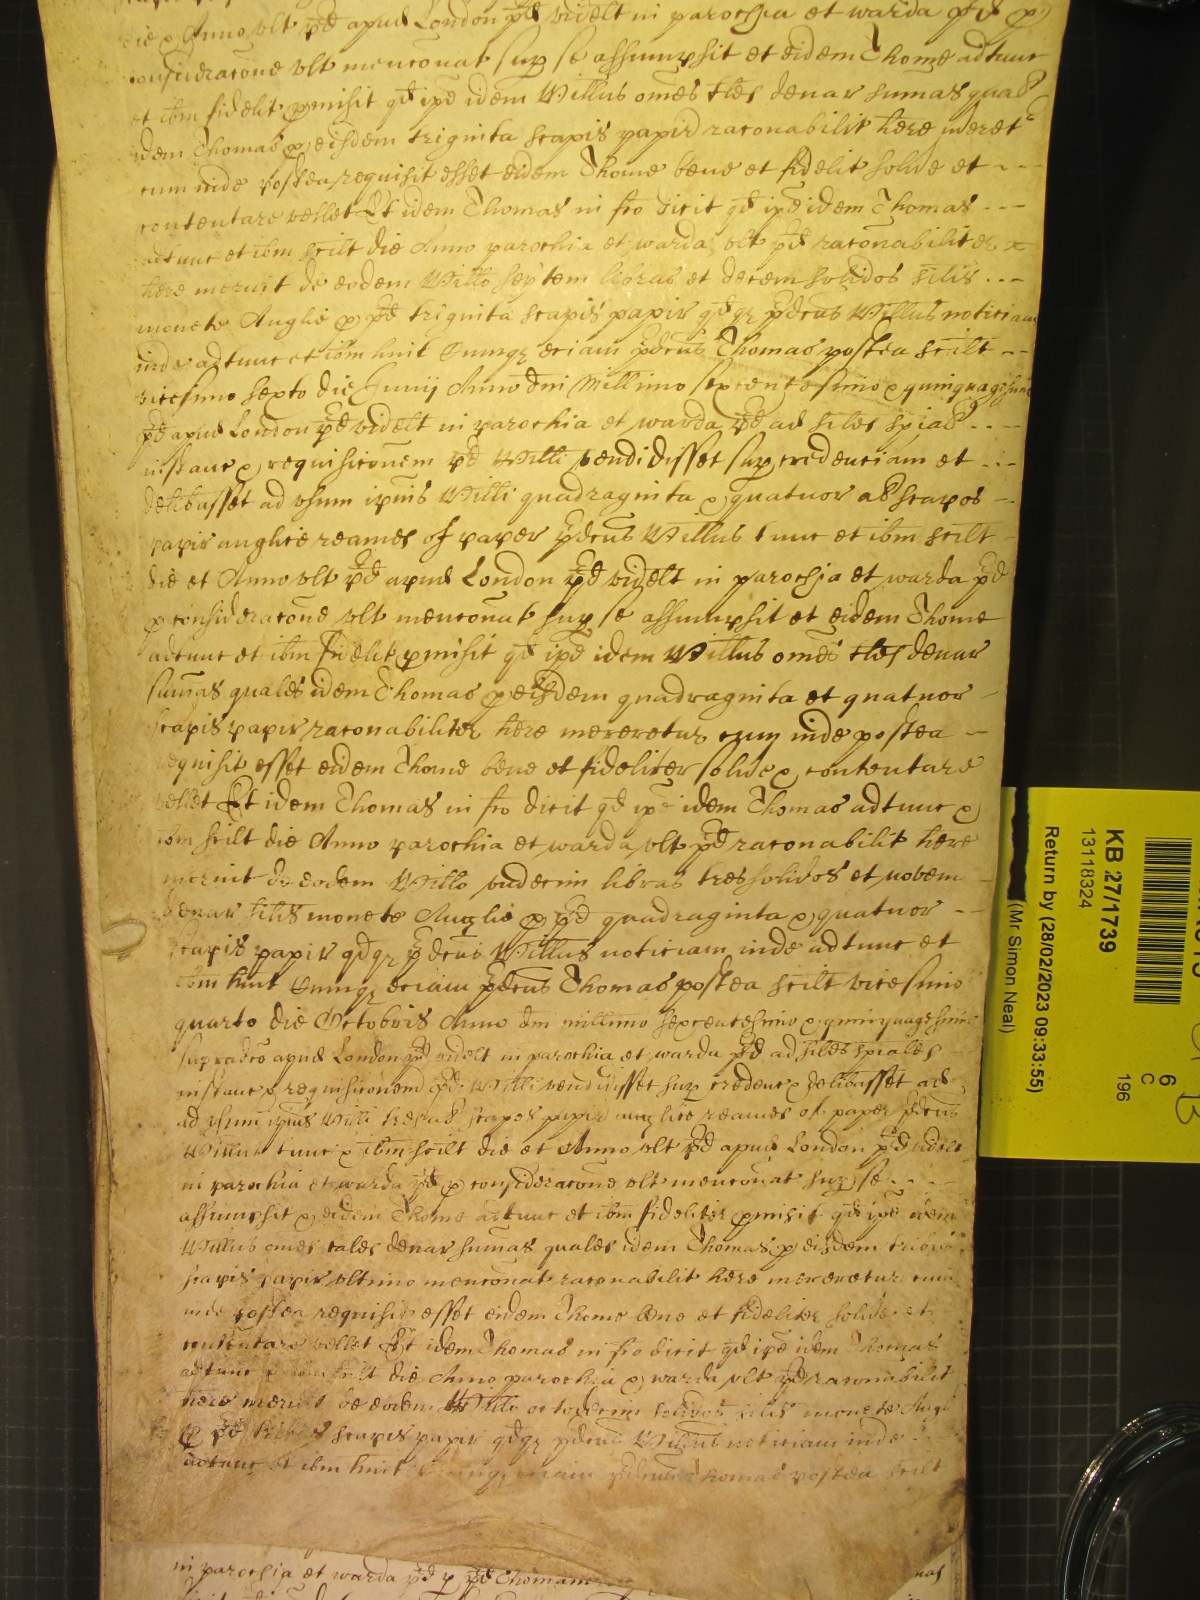 die & Anno ult pd apud London pd vidlt in parochia et warda pd p
consideracone ult menconat sup se assumpsit et eidem Thome adtunc
et ibm fidelit pmisit qd ipe idem Willus omes tles denar sumas quas
idem Thomas p eisdem triginta scapis papir raconabilit here meret
cum inde postea requisit esset eidem Thome bene et fidelit solve et ---
contentare vellet Et idem Thomas in fco dicit qd ipe idem Thomas ---
adtunc et ibm scilt die Anno parochia et warda ult pd raconabiliter
here meruit de eodem Willo septem libras et decem solidos silis ---
monete Anglie p pd triginta scapis papir qdqz pdcus Willus noticiam
inde adtunc et ibm huit Cumqz eciam pdcus Thomas postea scilt --
vicesimo septo die Junij Anno dni Millimo sexcentesimo & quinquagesimo
pd apud London pd vidlt in parochia et warda pd ad siles spial ---
instanc & requisiconem pd Willi vendidisset sup credenciam et ---
delibasset ad usum ipius Willi quadraginta & quatuor al scapos --
papir anglice reames of paper pdcus Willus tunc et ibm scilt -
die et Anno ult pd apud London pd vidlt in parochia et warda pd
p consideracone ult menconat sup se assumpsit et eidem Thome
adtunc et ibm fidelit pmisit qd ipe idem Willus omes tles denar
sumas quales idem Thomas p eisdem quadraginta et quatuor -
scapis papir raconabiliter here mereretur cum inde postea -
requisit esset eidem Thome bene et fideliter solve & contentare
vellet Et idem Thomas in fco dicit qd ipe idem Thomas adtunc &
ibm scilt die Anno parochia et warda ult pd raconabilit here
meruit de eodem Willo undecim libras tres solidos et novem
denar silis monete Anglie p pd quadraginta & quatuor --
scapis papir qdqz pdcus Willus noticiam inde adtunc et
ibm huit Cumqz eciam pdcus Thomas postea scilt vicesimo
quarto die Octobris Anno dni millimo sexcentesimo & quinquagesimo
supradco apud London pd vidlt in parochia et warda pd ad siles spiales
instanc & requisiconem pd Willi vendidisset sup credenc & delibasset
ad usum ipius Willi tres al scapos papir anglice reames of paper pdcus
Willus tunc & ibm scilt die et Anno ult pd apud London pd vidlt
in parochia et warda pd p consideracone ult menconat sup se ----
assumpsit & eidem Thome adtunc et ibm fideliter pmisit qd ipe idem
Willus omes tales denar sumas quales idem Thomas p eisdem tribus
scapis papir ultimo menconat raconabilit here mereretur cum
inde postea requisit esset eidem Thome bene et fideliter solvere et
contentare vellet Et idem Thomas in fco dicit qd ipe idem Thomas
adtunc & ibm scilt die Anno parochia & warda ult pd raconabilit
here meruit de eodem Willo octodecim solidos silis monete Angl
p pd tribus scapis papir qdqz pdcus Willus noticiam inde
adtunc et ibm huit Cumqz eciam pdcus Thomas postea scilt
in parochia et warda pd p pd Thomam
KB 27/1739
13118324
Return by (28/02/2023 09:33:55)
(Mr Simon Neal)
6
C
196
B